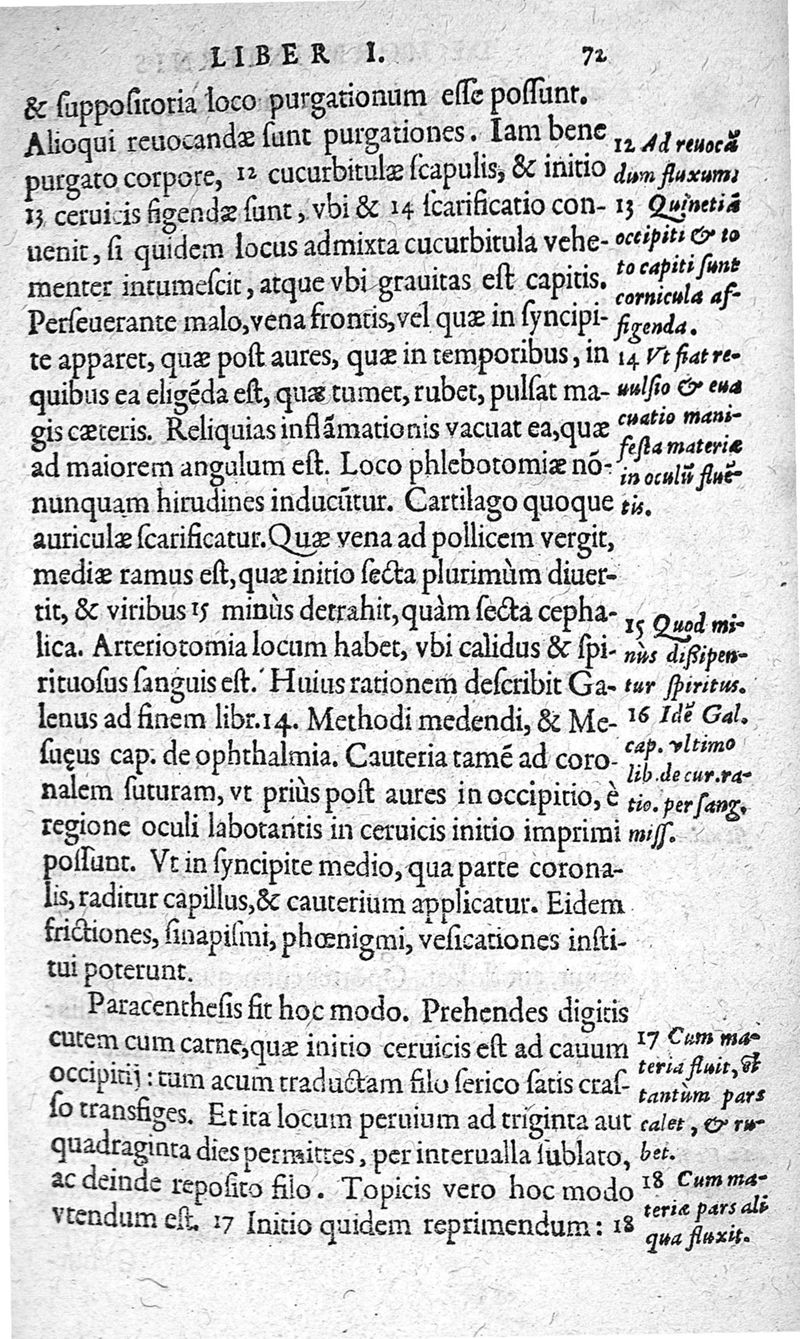 LIBER I. 72
& suppositoria loco purgationum esse possunt.
Alioqui reuocandæ sunt purgationes. Iam bene
purgato corpore, 12 cucurbitulæ scapulis, & initio
13 ceruicis figendæ sunt, vbi & 14 scarificatio con-
uenit, si quidem locus admixta cucurbitula vehe-
menter intumescit, atque vbi grauitas est capitis.
Perseuerante malo, vena frontis, vel quæ in syncipi-
te apparet, quæ post aures, quæ in temporibus, in
quibus ea eligẽda est, quæ tumet, rubet, pulsat ma-
gis cæteris. Reliquias inflãmationis vacuat ea, quæ
ad maiorem angulum est. Loco phlebotomiæ nõ-
nunquam hirudines inducũtur. Cartilago quoque
auriculæ scarificatur. Quæ vena ad pollicem vergit,
mediæ ramus est, quæ initio secta plurimùm diuer-
tit, & viribus 15 minùs detrahit, quàm secta cepha-
lica. Arteriotomia locum habet, vbi calidus & spi-
rituosus sanguis est. Huius rationem describit Ga-
lenus ad finem libr. 14. Methodi medendi, & Me-
suęus cap. de ophthalmia. Cauteria tamẽ ad coro-
nalem suturam, vt priùs post aures in occipitio, è
regione oculi laborantis in ceruicis initio imprimi
possunt. Vt in syncipite medio, qua parte corona-
lis, raditur capillus, & cauterium applicatur. Eidem
frictiones, sinapismi, phœnigmi, vesicationes insti-
tui poterunt.
Paracenthesis fit hoc modo. Prehendes digitis
cutem cum carne, quæ initio ceruicis est ad cauum
occipitij: tum acum traductam filo serico satis cras-
so transfiges. Et ita locum peruium ad triginta aut
quadraginta dies permittes, per interualla sublato,
ac deinde reposito filo. Topicis vero hoc modo
vtendum est. 17 Initio quidem reprimendum: 18
12 Ad reuocã
dum fluxum;
13 Quinetiã
occipiti & to
to capiti sunt
cornicula af-
figenda.
14 Vt fiat re-
uulsio & eua
cuatio mani-
festa materiæ
in oculũ fluẽ-
tis.
15 Quod mi-
nùs dissipen-
tur spiritus.
16 Idẽ Gal.
cap. vltimo
lib. de cur. ra-
tio. per sang.
miss.
17 Cum ma-
teria fluit, et
tantùm pars
calet, & ru-
bet.
18 Cum ma-
teriæ pars ali
qua fluxit.